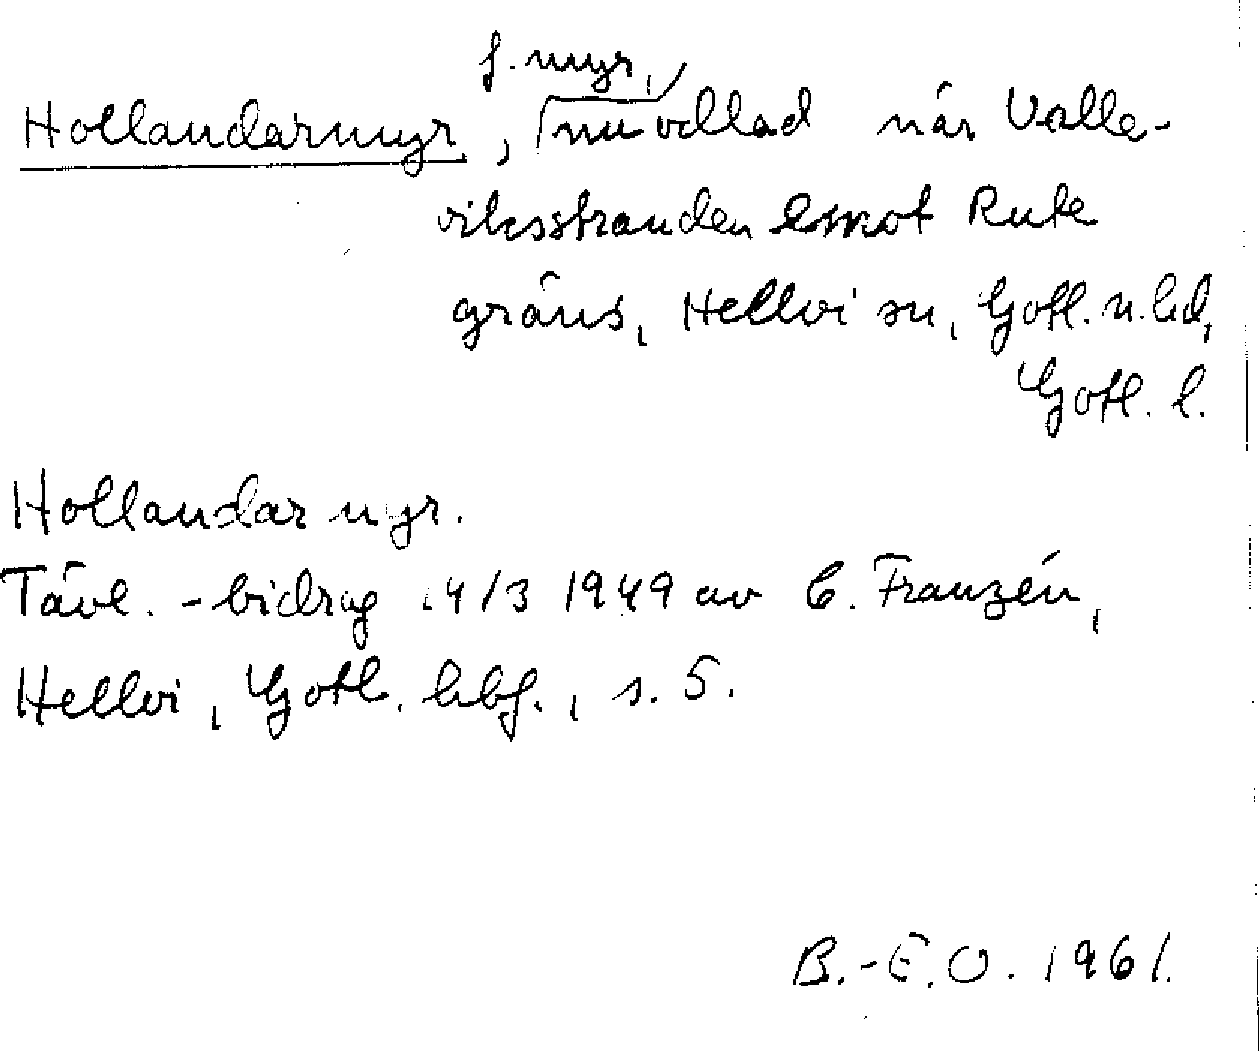 f. myr,
Hollandarmyr, nu odlad när Valle-
viksstranden emot Rute
gräns, Hellvi sn, Gotl. n. hd,
Gotl. l.
Hollandar myr.
Tävl. - bidrag 14/3 1949 av C. Franzén,
Hellvi, Gotl. hbf., s. 5.
B.-E.O. 1961.